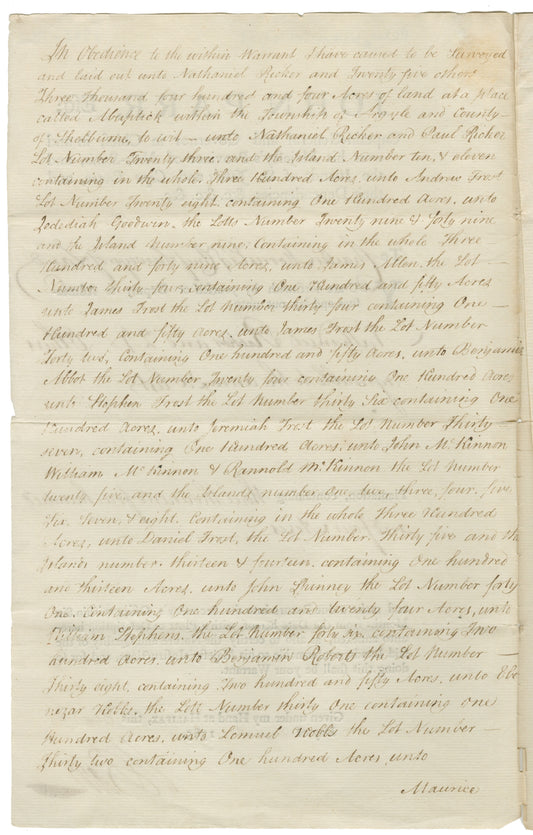 In Obedience to the within Warrant I have caused to be Surveyed
and laid out unto Nathaniel Ricker and Twenty five others
Three Thousand four hundred and four Acres of land at a place
called Abuptick within the Township of Argyle and County
of Shelburne, to wit — unto Nathaniel Ricker and Paul Ricker
Lot Number Twenty three. and the Island Number ten, & eleven
containing in the whole. Three Hundred Acres, unto Andrew Frost
Lot Number Twenty eight. containing One Hundred Acres, unto
Jedediah Goodwin. the Lotts Number Twenty nine & forty nine
and the Island Number nine, Containing in the whole Three
Hundred and forty nine Acres, unto James Allen, the Lot —
Number Thirty four, containing One Hundred and fifty Acres
unto James Frost the Lot Number thirty four containing One —
Hundred and fifty Acres. unto James Frost the Lot Number
Forty two, Containing One hundred and fifty Acres, unto Benjamin
Abbot the Lot Number, Twenty four containing One Hundred Acres
unto Stephen Frost the Lot Number thirty Six containing One
Hundred Acres. unto Jeremiah Frost the Lot Number Thirty —
seven, containing One Hundred Acres, unto John McKinnon
William McKinnon & Rannold McKinnon the Lot Number
twenty five, and the Islands number one, two, three, four, five,
Six, Seven, & eight. Containing in the whole Three Hundred
Acres, unto Daniel Frost, the Lot Number Thirty five and the
Islands number. thirteen & fourteen. containing One hundred
and thirteen Acres. unto John Quinney the Lot Number forty
One. Containing One hundred and twenty four Acres, unto
William Stephens. the Lot Number forty six, containing Two
hundred Acres. unto Benjamin Roberts the Lot Number —
Thirty eight, containing Two hundred and fifty Acres, unto Ebe
nezar Hobbs, the Lott Number thirty one containing one
Hundred Acres, unto Lemuel Hobbs the Lot Number —
Thirty two containing One hundred Acres unto
Maurice